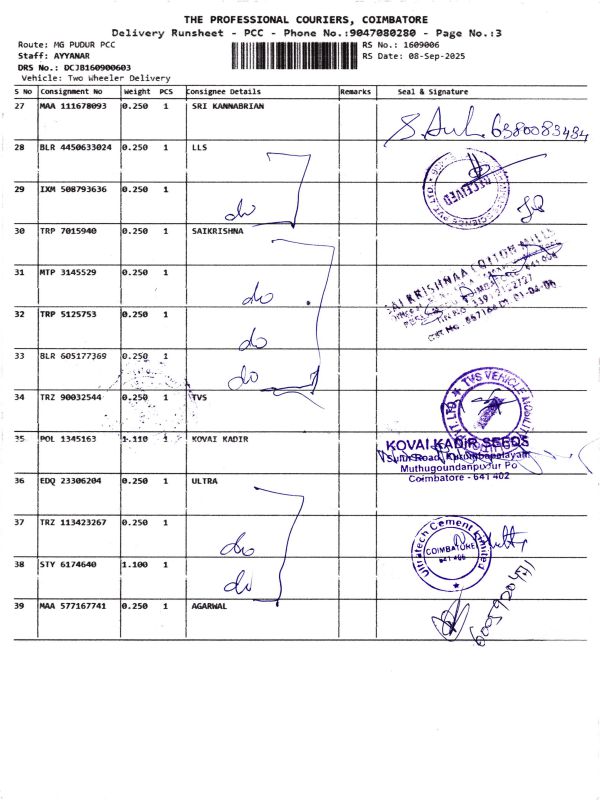 THE PROFESSIONAL COURIERS, COIMBATORE
Delivery Runsheet - PCC - Phone No.:9047080280 - Page No.:3
Route: MG PUDUR PCC
RS No.: 1609006
Staff: AYYANAR
RS Date: 08-Sep-2025
DRS No.: DCJB160900603
Vehicle: Two Wheeler Delivery
S No Consignment No Weight PCS Consignee Details Remarks Seal & Signature
27 MAA 111678093 0.250 1 SRI KANNABRIAN
6380083434
28 BLR 4450633024 0.250 1 LLS
RECEIVED
29 IXM 508793636 0.250 1 do
30 TRP 7015940 0.250 1 SAIKRISHNA
SAI KRISHNAA COTTON MILLS
31 MTP 3145529 0.250 1 do
32 TRP 5125753 0.250 1 do
33 BLR 605177369 0.250 1 do
34 TRZ 90032544 0.250 1 TVS
TVS VEHICLE MOBILITY
35 POL 1345163 1.110 1 KOVAI KADIR
KOVAI KADIR SEEDS
Sulur Road, Kurumbapalayam
Muthugoundanpudur Po
Coimbatore - 641 402
36 EDQ 23306204 0.250 1 ULTRA
37 TRZ 113423267 0.250 1 do
Ultratech Cement Limited
COIMBATORE
38 STY 6174640 1.100 1 do
39 MAA 577167741 0.250 1 AGARWAL